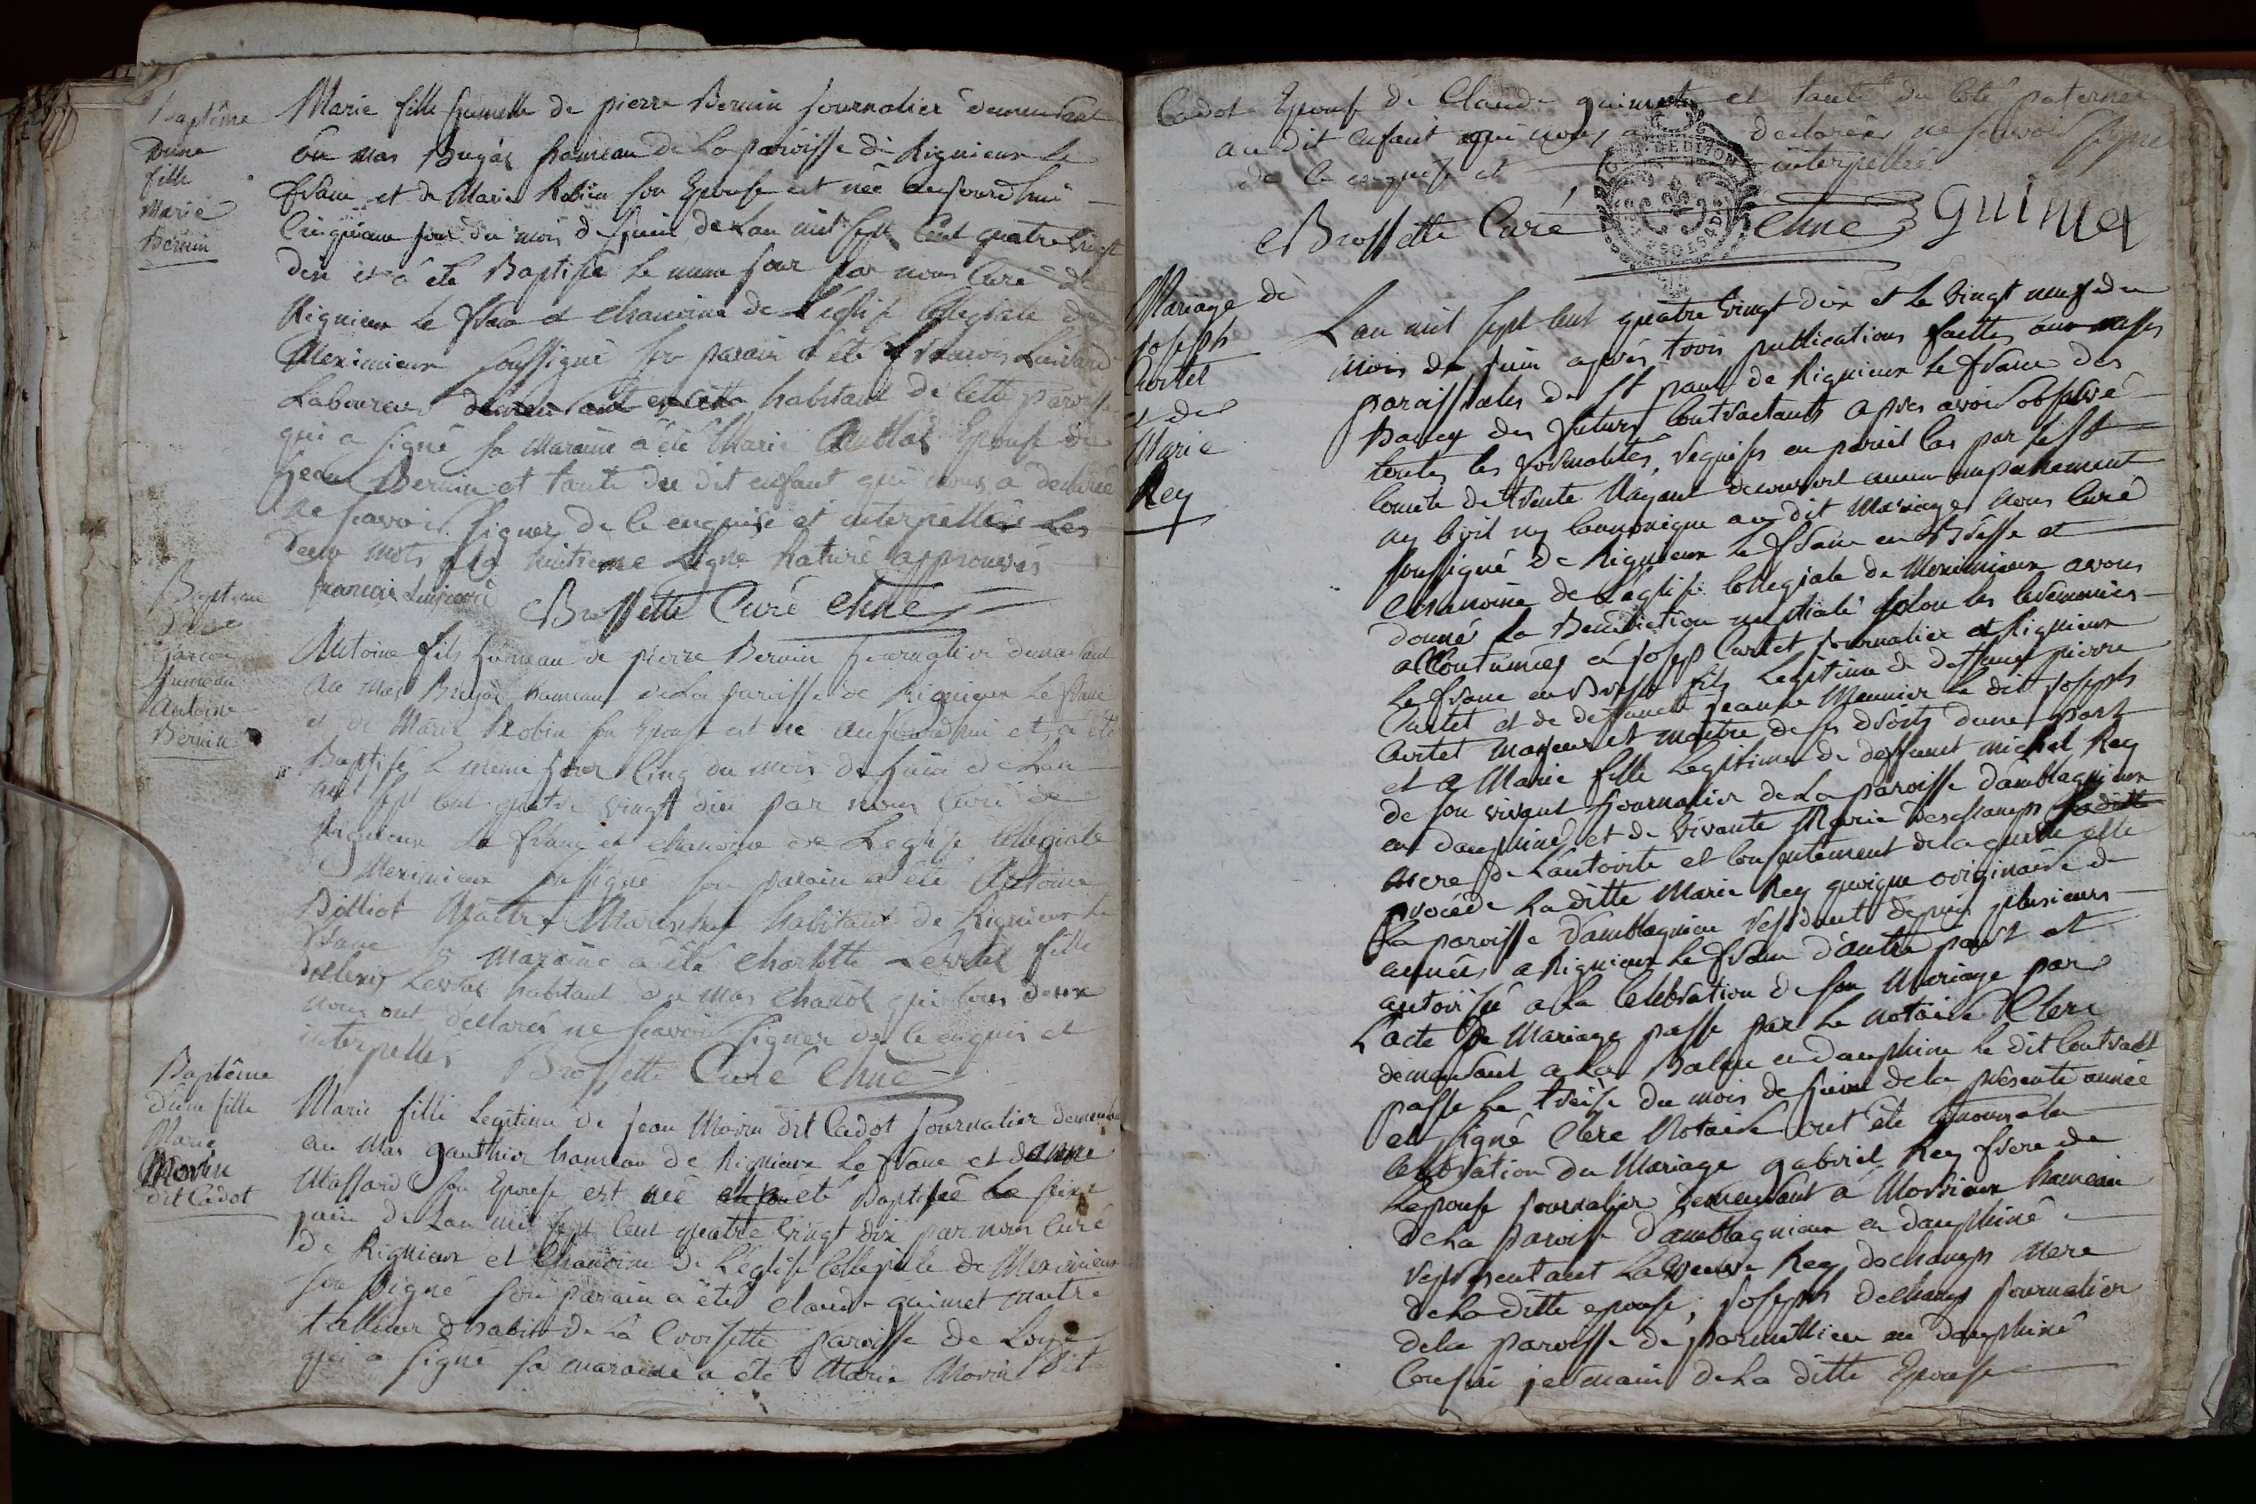 Baptême
dune
fille
Marie
Bernin
Marie fille jumelle de pierre Bernin journalier demeurant
au mas Bugas hameau de la paroisse de Rignieux le
franc et de Marie Robin son Epouse est née aujourdhui
Cinquieme jour du mois de juin de Lan mil sept Cent quatre vingt
dix et a été Baptisée le meme jour par nous Curé de
Rignieux le franc et chanoine de L'église Collegiale de
Meximieux soussigné son parain a été francois
Laboureur demeurant en cette habitant de cette paroisse
qui a signé sa maraine a été Marie Epouse de
jean Bernin et tante du dit enfant qui nous a declaré
ne scavoir signer de ce enquise et interpellée Les
deux mots a la huitieme Ligne Raturé approuvés
francois
Brossette Curé chne
Baptême
d'un
Garcon
jumeau
Antoine
Bernin
Antoine fils jumeau de pierre Bernin journalier demeurant
au mas Bugas hameau de La paroisse de Rignieux Le franc
et de Marie Robin son Epouse est né aujourdhui et a été
Baptisé le meme jour Cinq du mois de juin de Lan
mil sept cent quatre vingt dix par nous Curé de
Rignieux Le franc et chanoine de L'eglise Collegiale
de Meximieux soussigné son parain a été Antoine
Billiot Maitre Marechal habitant de Rignieux Le
franc sa maraine a été Charlotte fille
habitant du mas qui tous deux
nous ont declarés ne scavoir signer de ce enquis et
interpellés Brossette Curé chne
Baptême
d'une fille
Marie
Morin
dit Cadot
Marie fille Legitime de jean Morin dit Cadot journalier demeurant
au mas gauthier hameau de Rignieux Le franc et danne
Massard son Epouse est née et a été Baptisée Le
juin de Lan mil sept Cent quatre vingt dix par nous Curé
de Rignieux et Chanoine de L'église Collegiale de Meximieux
sousigné son parain a été Claude guimet maitre
tailleur d'habit de La Croisette paroisse de Loye
qui a signé sa maraine a été Marie Morin dit
Cadot Epouse de Claude guimet et tante du coté paternel
au dit enfant qui nous a declarée ne scavoir signer
de ce enquise et interpellée
Brossette Curé chne Guimet
Mariage de
joseph
Cartet
et de
Marie
Rey
L'an mil sept cent quatre vingt dix et le vingt neuf du
mois de juin après trois publications faittes aux messes
paroissiales de St paul de Rignieux Le franc des
Bancs des futurs Contractants apres avoir observé
toutes les formalités requises en pareil Cas par le St
Concile de trente Nayant decouvert aucun empechement
ny Civil ny Cannonique au dit Mariage nous Curé
soussigné de Rignieux Le franc en Bresse et
Chanoine de L'église Collegiale de Meximieux avons
donné La Benediction nuptiale selon les Ceremonies
accoutumées a joseph Cartet journalier a Rignieux
Le franc en Bresse fils Legitime de deffunt pierre
Cartet et de deffunte jeanne Meunier Le dit joseph
Cartet majeur et maitre de ses droits dune part
et a Marie fille Legitime de deffunt michel Rey
de son vivant journalier de La paroisse damblagnieux
en dauphiné et de vivante Marie Deschamps sa ditte
mere de L'autorité et consentement delaquelle elle
procéde La ditte Marie Rey quoique originaire de
La paroisse damblagnieu residante depuis plusieurs
années a Rignieux Le franc d'autre part et
autorisé a La Celebration de son Mariage par
L'acte de Mariage passé par Le notaire Clerc
demeurant a La Balme en dauphiné Le dit Contract
passé Le treize du mois de juin de La presente année
et signé Clerc Notaire ont été temoins a la
Celebration du Mariage gabriel Rey frere de
Lepouse journalier demeurant a hameau
de La paroisse d'amblagnieux en dauphiné
representant La veuve Rey, dechamps mere
de La ditte epouse, joseph dechamps journalier
de la paroisse de parmillieu en dauphiné
Cousin jermain de La ditte Epouse